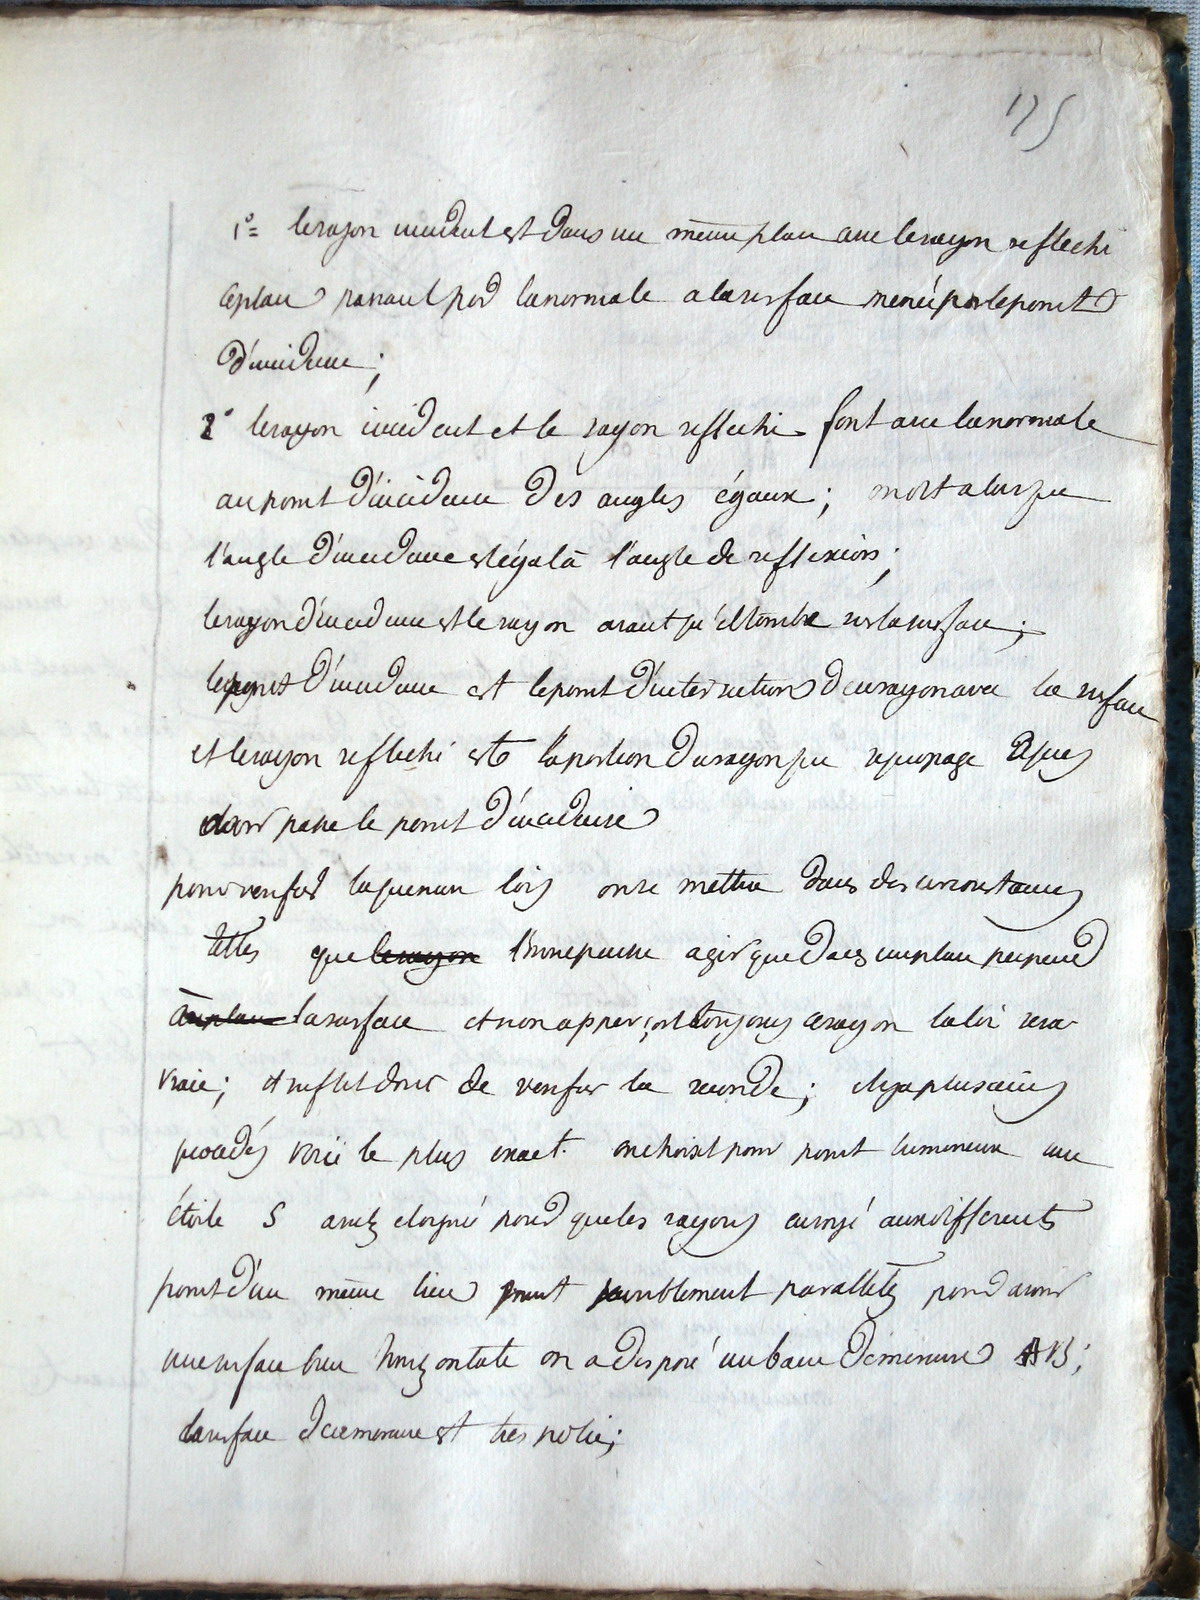 175
1° le rayon incident est dans un même plan avec le rayon reflechi
ce plan passant par la normale a la surface menée par le point
d'incidence;
2° le rayon incident et le rayon reflechi font avec la normale
au point d'incidence des angles égaux;
l'angle d'incidence est égal à l'angle de reflexion;
le rayon d'incidence est le rayon avant qu'il tombe sur la surface;
le point d'incidence est le point d'intersection du rayon avec la surface
et le rayon reflechi est la portion du rayon qui se propage
passe le point d'incidence
pour verifier la premiere loi on se mettra dans des circonstances
telles que le rayon l'on ne puisse agir que dans un plan perpend
à un plan la surface et si on apperçoit toujours ce rayon la loi sera
vraie; il suffit donc de verifier la seconde; il y a plusieurs
procedés voici le plus exact. on choisit pour point lumineux une
étoile S assez eloigné pour que les rayons envoyé aux differents
point d'un même lieu soient sensiblement parallelles pour avoir
une surface bien horizontale on a disposé un bain de mercure AB;
la surface du mercure est tres polie;